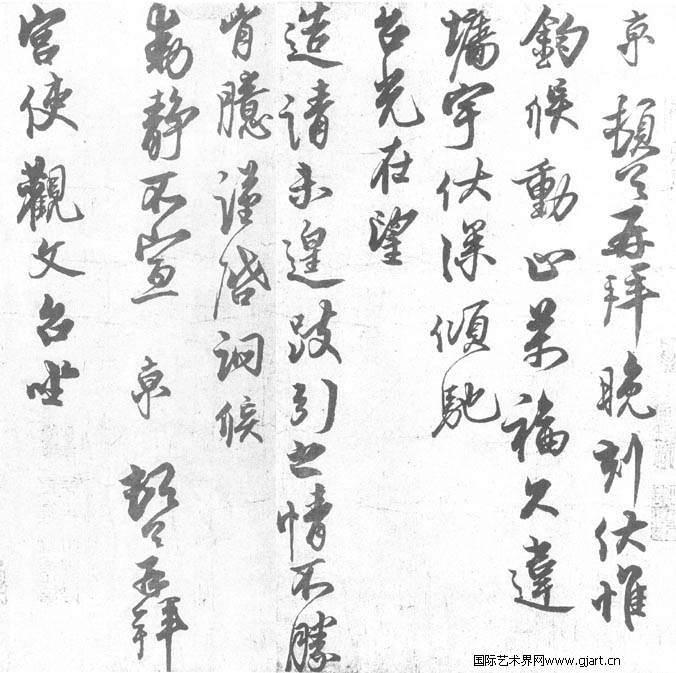 京頓首再拜晚刻伏惟
鈞候動止萬福久違
墻宇伏深傾馳
台光在望
造請未遑跂引之情不勝
胷臆謹啓詗候
動靜不宣京頓首再拜
宮使觀文台坐
国际艺术界网www.gjart.cn